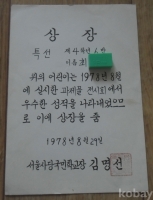 상장
특선 제 4 학년 6 반
이름 최
위의 어린이는 1978년 8월
에 실시한 과제물 전시회에서
우수한 성적을 나타내었으므
로 이에 상장을 줌
1978년 8월 29일
서울사당국민학교장 김명선
kobay